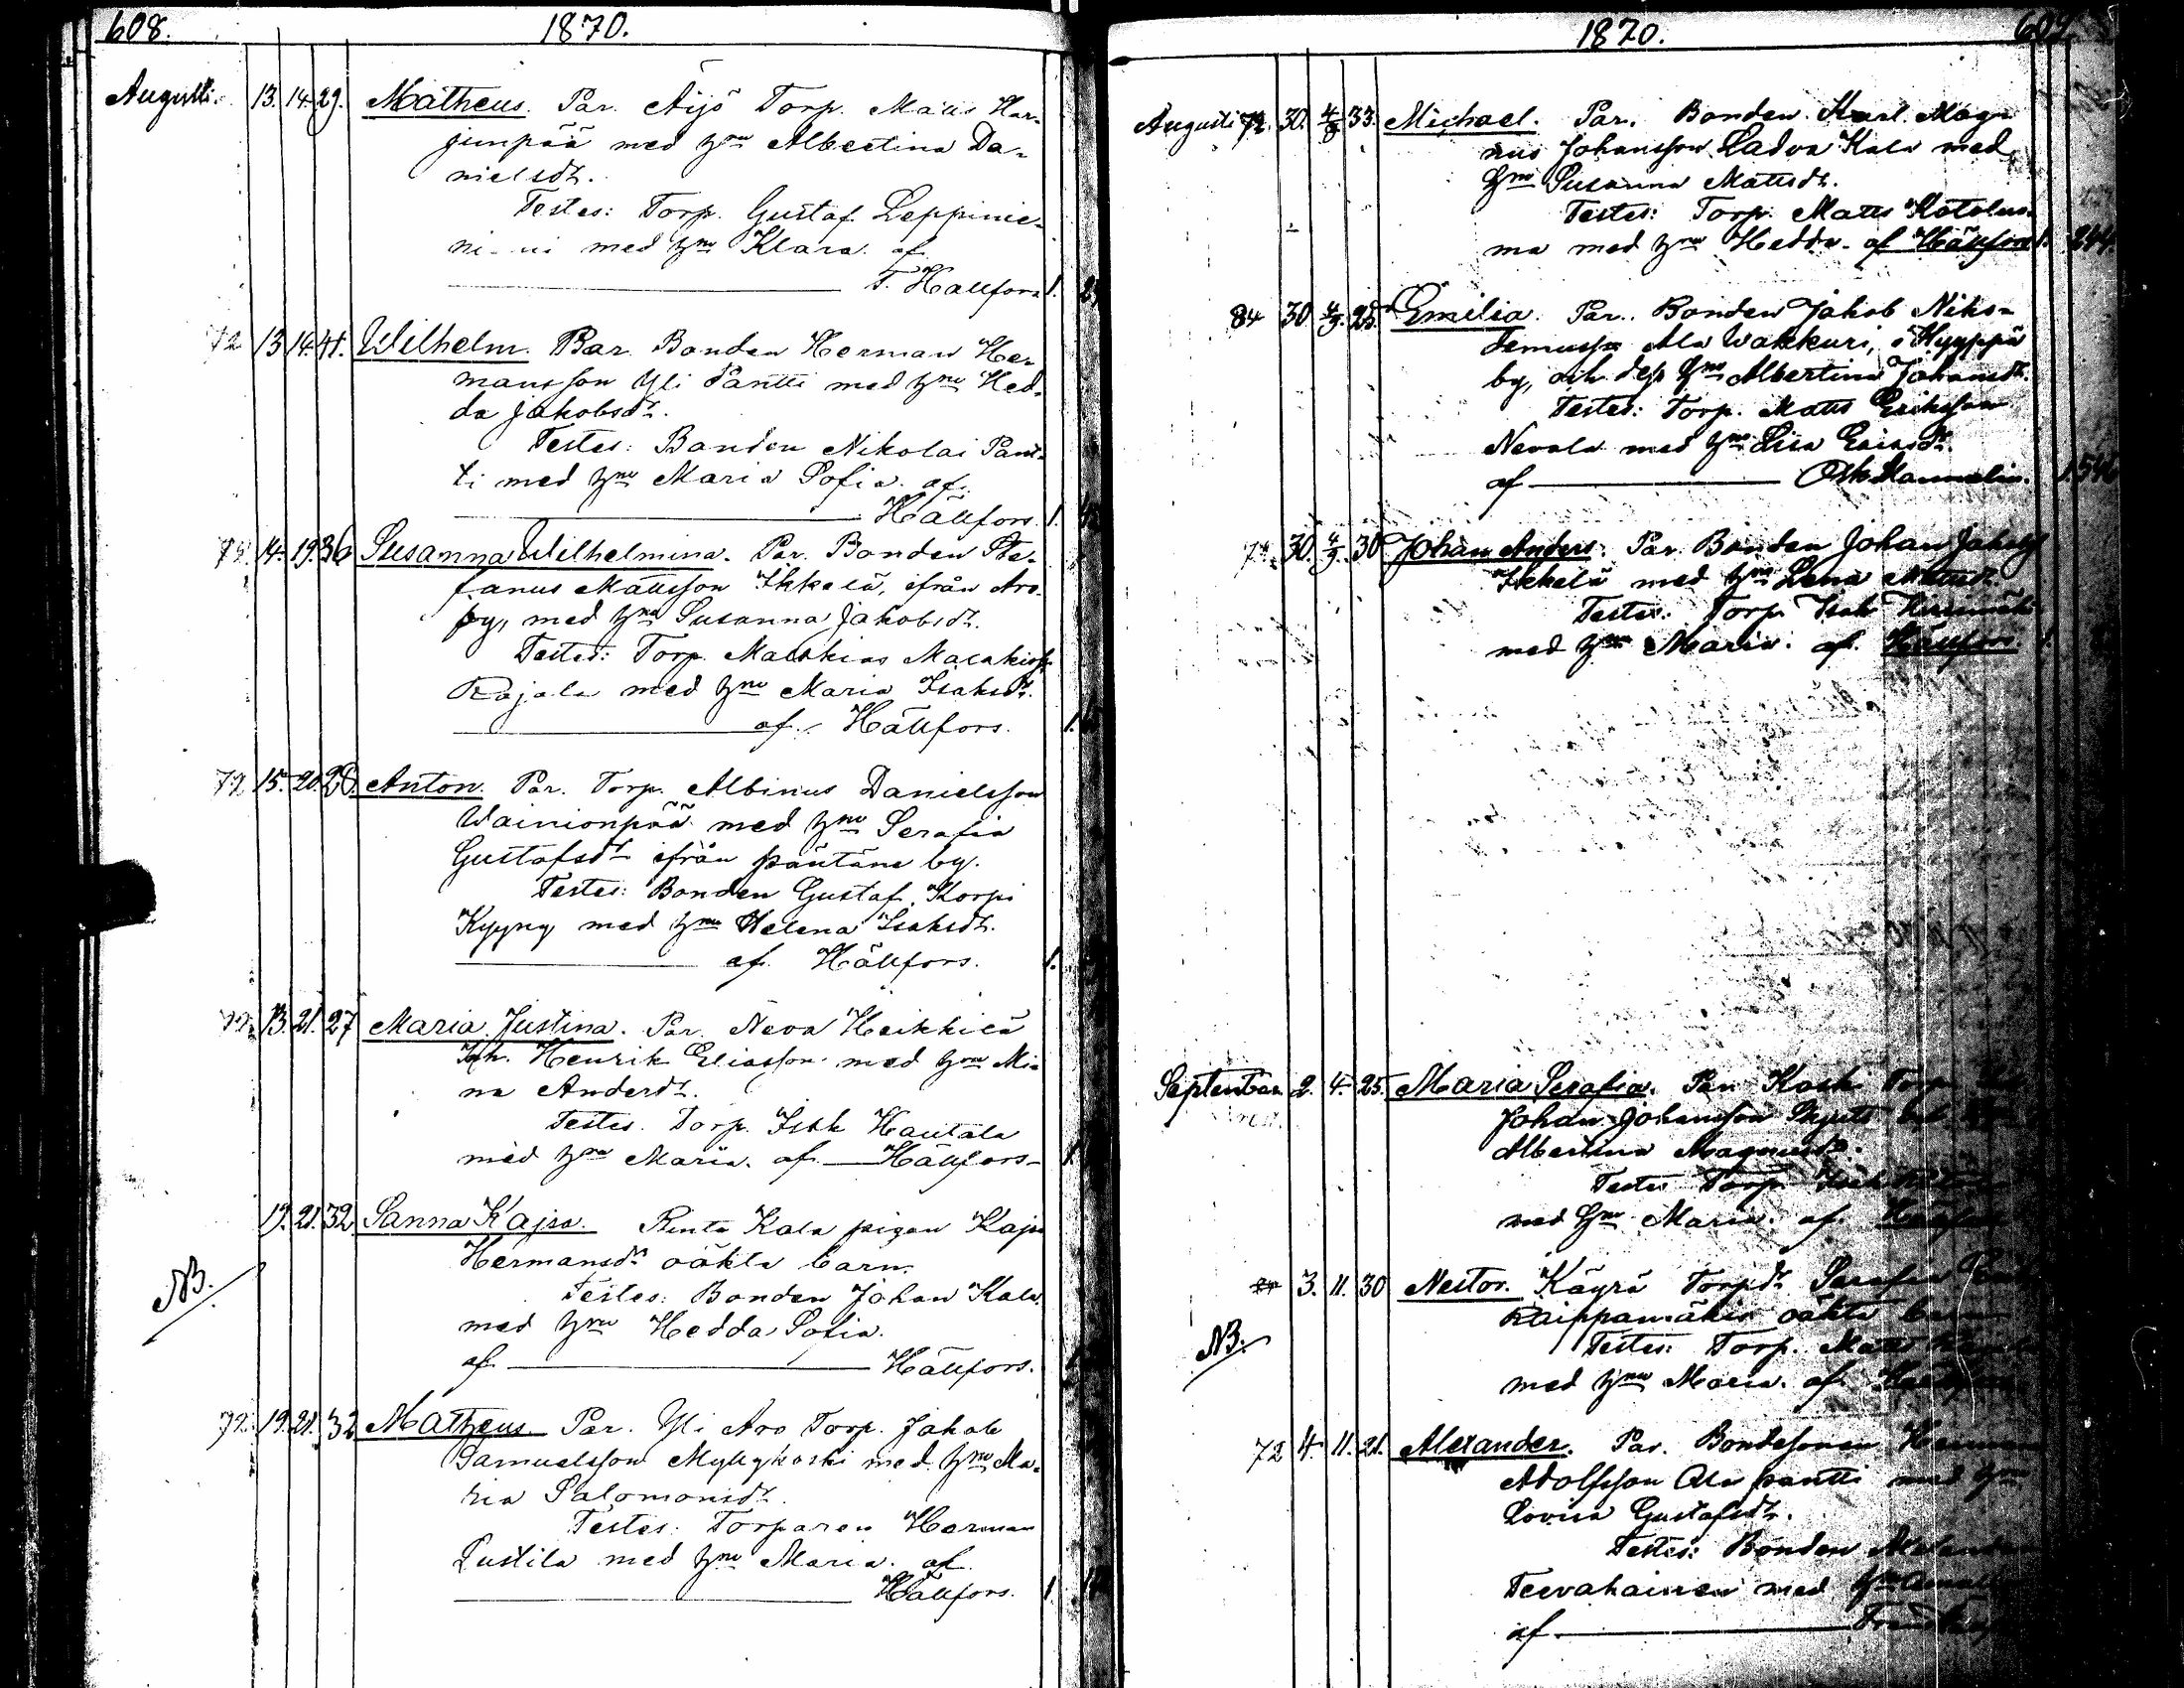 608.
1870.
Augusti. 13. 14. 29. Matheus. Par. Äijö Torp. Matts Har-
junpää med hru Albertina Da-
nielsdr.
Testes: Torp. Gustaf Leppinie-
ni-ni med hru Klara. af
T. Hällfors 1.
72 13 14. 41. Wilhelm. Par. Bonden Herman Her-
mansson Yli Päntti med hru Hed-
da Jakobsdr.
Testes: Bonden Nikolai Pänt-
ti med hru Maria Sofia. af
Hällfors. 1.
14. 19. 36 Susanna Wilhelmina. Par. Bonden Ste-
fanus Mattsson Ikkelä, ifrån Aro
by, med hru Susanna Jakobsdr.
Testes: Torp. Malakias Malakiass
Rajala med hru Maria Isaksdr.
af. Hällfors. 1.
72 15. 20. 28. Anton. Par. Torp. Albinus Danielsson
Wainionpää med hru Serafia
Gustafsdr ifrån päntäne by.
Testes: Bonden Gustaf Korpi
Kyyny med hru Helena Isaksdr.
af. Hällfors. 1.
72. 13. 21. 27 Maria Justina. Par. Neva Heikkilä
Inh. Henrik Eliasson med hru Mi-
na Andersdr.
Testes. Torp. Isak Hautala
med hru Maria. af Hällfors 1.
19. 21. 32 Sanna Kajsa. Rinta Kala pigan Kajsa
Hermansdr oäkta barn.
NB.
Testes: Bonden Johan Kala
med hru Hedda Sofia.
af Hällfors. 1.
72. 19. 21. 32 Matheus. Par. Yli Aro Torp. Jakob
Samuelsson Myllykoski med hru Ma-
ria Salomonsdr.
Testes: Torparen Herman
Lustila med hru Maria. af
Hällfors. 1.
1870.
609.
Augusti 72. 30. 4/9 33. Michael. Par. Bonden Karl Mag-
nus Johansson Ladva Kala med
hru Susanna Mattsdr.
Testes: Torp. Matts
ma med hru Hedda. af Hällfors 1. 244.
84 30 4/9. 25. Emilia. Par. Bonden Jakob Niko-
demusss Ala Wakkuri, i Hyyppä
by, och dess hru Albertina Johansdr.
Testes: Torp. Matts Eriksson
Nevala med hru Lisa
af Osk. Mannelin. 1.
30. 4/9. 30 Johan Anders. Par. Bonden Johan Jakobss
Ikkelä med hru Lena Mattsdr.
Testes: Torp. Isak
med hru Maria. af. Hällfors. 1.
September 2. 4. 25. Maria Serafia. Par. Koski Torp.
Johan Johansson
Albertina Magnusdr.
Testes Torp. Isak
med hru Maria. af. Hällfors
3. 11. 30 Nestor. Käyrä Torpdr. Serafia
Raippamäkis oäkta barn
NB.
Testes: Torp. Matts
med hru Maria. af Hällfors
72 4. 11. 21. Alexander. Par. Bondesonen Herman
Adolfsson Ala päntti med hru
Lovisa Gustafsdr.
Testes: Bonden Alexander
Teevahainen med hru
af